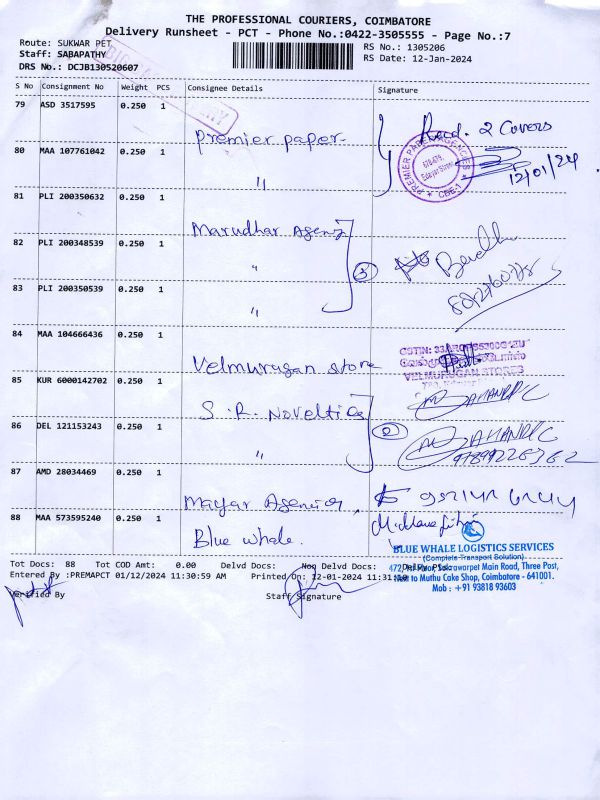 THE PROFESSIONAL COURIERS, COIMBATORE
Delivery Runsheet - PCT - Phone No.:0422-3505555 - Page No.:7
Route: SUKWAR PET
Staff: SABAPATHY
DRS No.: DCJB130520607
RS No.: 1305206
RS Date: 12-Jan-2024
S No Consignment No Weight PCS Consignee Details Signature
79 ASD 3517595 0.250 1 Premier paper Recd. 2 Covers
80 MAA 107761042 0.250 1 "
PREMIER PAPER AGENCIES
CBE-1
12/01/24
81 PLI 200350632 0.250 1 Marudhar Agency
82 PLI 200348539 0.250 1 " 3
83 PLI 200350539 0.250 1 "
84 MAA 104666436 0.250 1 Velmurugan store
VELMURUGAN STORES
85 KUR 6000142702 0.250 1 S.R. Novelties
86 DEL 121153243 0.250 1 " 2
87 AMD 28034469 0.250 1 Mayar Agencies,
88 MAA 573595240 0.250 1 Blue whale.
BLUE WHALE LOGISTICS SERVICES
(Complete Transport Solution)
Main Road, Three Post,
Next to Muthu Cake Shop, Coimbatore - 641001.
Mob : +91 93818 93603
Tot Docs: 88 Tot COD Amt: 0.00 Delvd Docs: Non Delvd Docs:
Entered By :PREMAPCT 01/12/2024 11:30:59 AM Printed On: 12-01-2024 11:31:10
Verified By Staff Signature